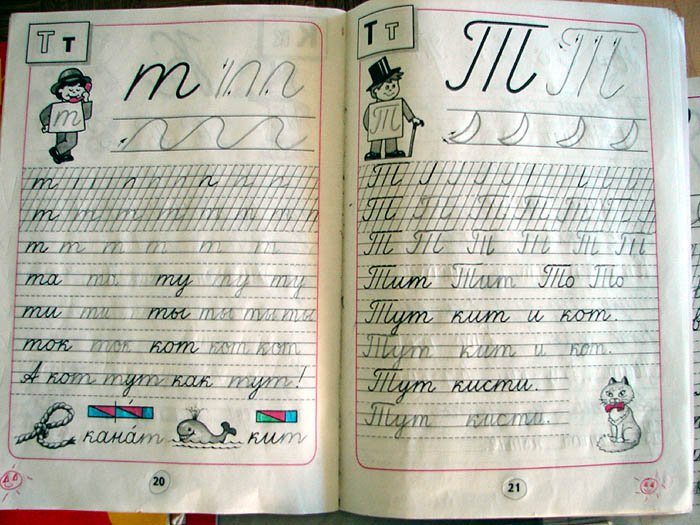 Т т
т
т
т
т т т т т т т т
т т т т т т
та та ту ту ту
ти ти ты ты ты
ток ток кот кот кот
А кот тут как тут!
кана́т кит
20
Т т
Т Т
Т
Т
Т Т Т Т Т Т
Т Т Т Т Т Т
Тит Тит То То
Тут кит и кот.
Тут кит и кот.
Тут кисти.
Тут кисти.
21